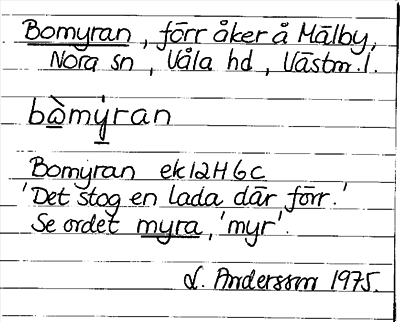 Bomyran, förr åker å Mälby,
Nora sn, Våla hd, Västm. l.
bo̱̊̀mý̱ran
Bomyran ek 12H6c
'Det stog en lada där förr.'
Se ordet myra, 'myr'.
L. Andersson 1975.